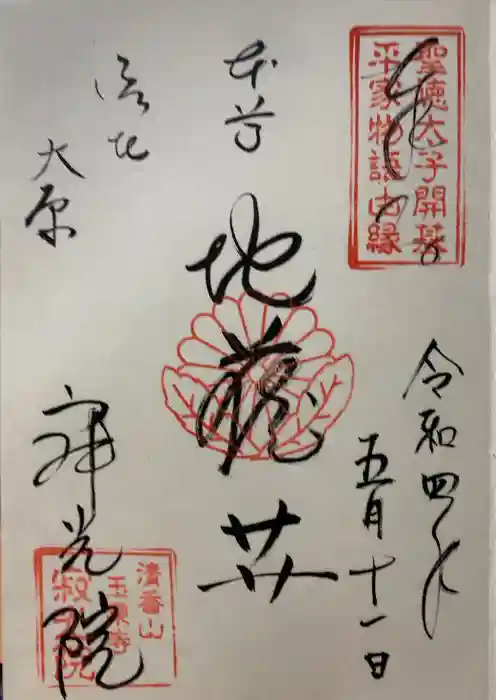 聖徳太子開基
平家物語由縁
奉拝
令和四年
五月十一日
本尊
地蔵𦬇
洛北
大原
寂光院
清香山
玉泉寺
寂光院